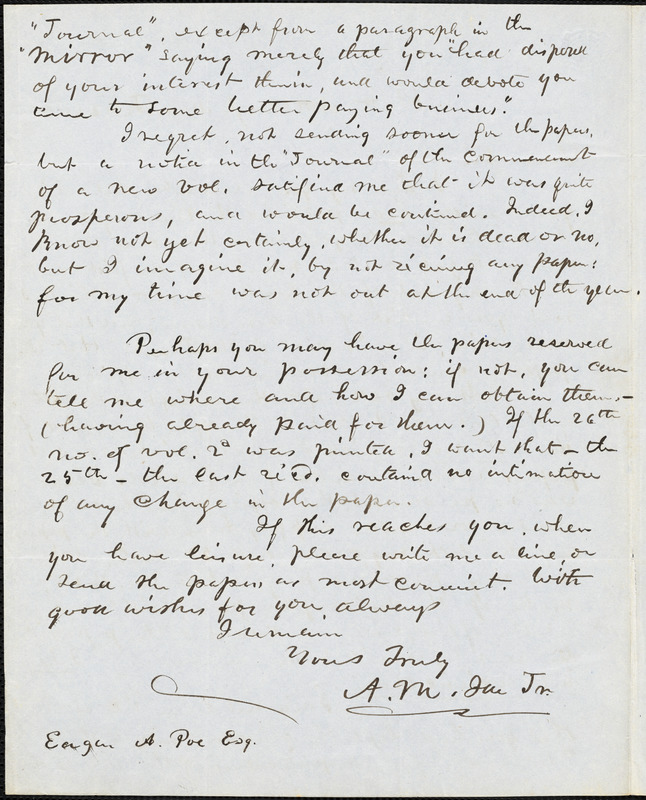 "Journal", except from a paragraph in the
"Mirror" saying merely that you "had disposed
of your interest therin, and would devote you
time to some better paying business."
I regret, not sending sooner for the papers,
but a notice in the "Journal" of the commencement
of a new vol. satisfied me that it was quite
prosperous, and would be continued. Indeed, I
know not yet certainly, whether it is dead or no,
but I imagine it, by not recieving any paper:
for my time was not out at the end of the year.
Perhaps you may have the papers reserved
for me in your possession: if not, you can
tell me where and how I can obtain them –
(having already paid for them.) If the 26th
no. of vol. 2d was printed, I want that – the
25th – the last rec'd. contained no intimation
of any change in the paper.
If this reaches you, when
you have leisure, please write me a line, or
send the papers as most convenient. With
good wishes for you, always
I remain
Yours Truly
A. M. Jr.
Edgar A. Poe Esq.